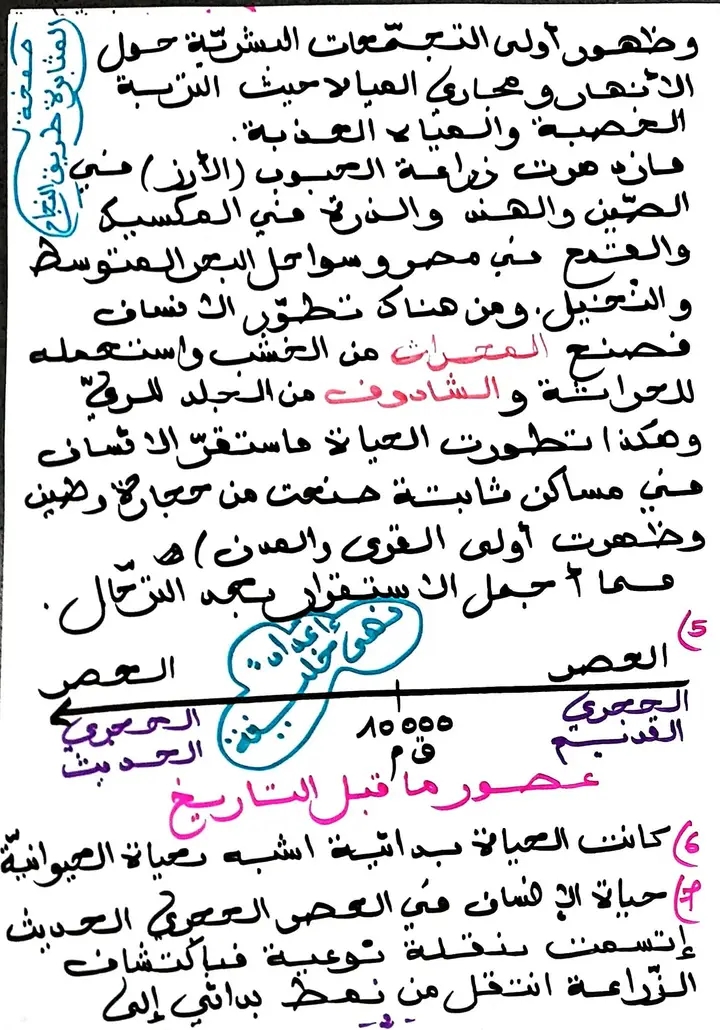 صفحة
المثابرة طريق النجاح
وظهور أولى التجمّعات البشريّة حول
الأنهار و مجاري المياه حيث التربة
الخصبة والمياه العذبة.
فازدهرت زراعة الحبوب (الأرز) في
الصّين والهند والذرة في المكسيك
والقمح في مصر وسواحل البحر المتوسط
والنّخيل. ومن هناك تطوّر الانسان
فصنع المحراث من الخشب واستعمله
للحراثة والشادوف من الجلد للريّ
وهكذا تطورت الحياة فاستقرّ الانسان
في مساكن ثابتة صنعت من حجارة وطين
وظهرت أولى القرى والمدن)
فما أجمل الاستقرار بعد التّرحّال.
إعداد:
نهى خليفة
5)
العصر
الحجري
القديم
10000
ق م
العصر
الحجري
الحديث
عصور ما قبل التاريخ
6) كانت الحياة بدائية اشبه بحياة الحيوانيّة
7) حياة الإنسان في العصر الحجري الحديث
إتسمت بنقلة نوعية فباكتشاف
الزّراعة انتقل من نمط بدائي إلى
-2-